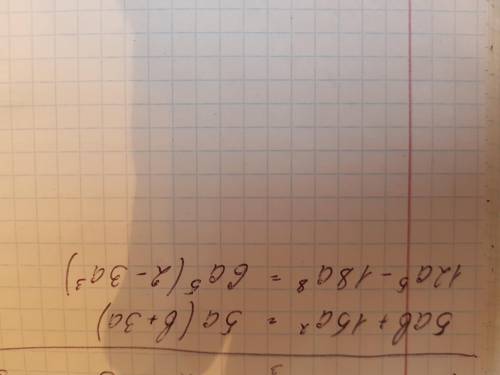 5ab + 15a² = 5a (b + 3a)
12a⁵ - 18a⁸ = 6a⁵ (2 - 3a³)